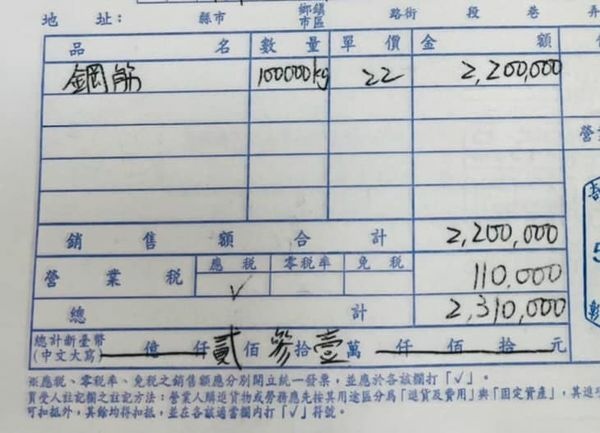 地 址： 縣市 鄉鎮市區 路街 段 巷 弄
品 名 數 量 單 價 金 額
鋼筋 100000kg 22 2,200,000
銷 售 額 合 計 2,200,000
營 業 稅 應 稅 零稅率 免 稅 110,000
√
總 計 2,310,000
總計新臺幣(中文大寫) 億 仟 貳 佰 參 拾 壹 萬 仟 佰 拾 元
※應稅、零稅率、免稅之銷售額應分別開立統一發票，並應於各該欄打「√」。
買受人註記欄之註記方法：營業人購進貨物或勞務應先按其用途區分為「進貨及費用」與「固定資產」，其進
可扣抵外，其餘均得扣抵，並在各該適當欄內打「√」符號。
營